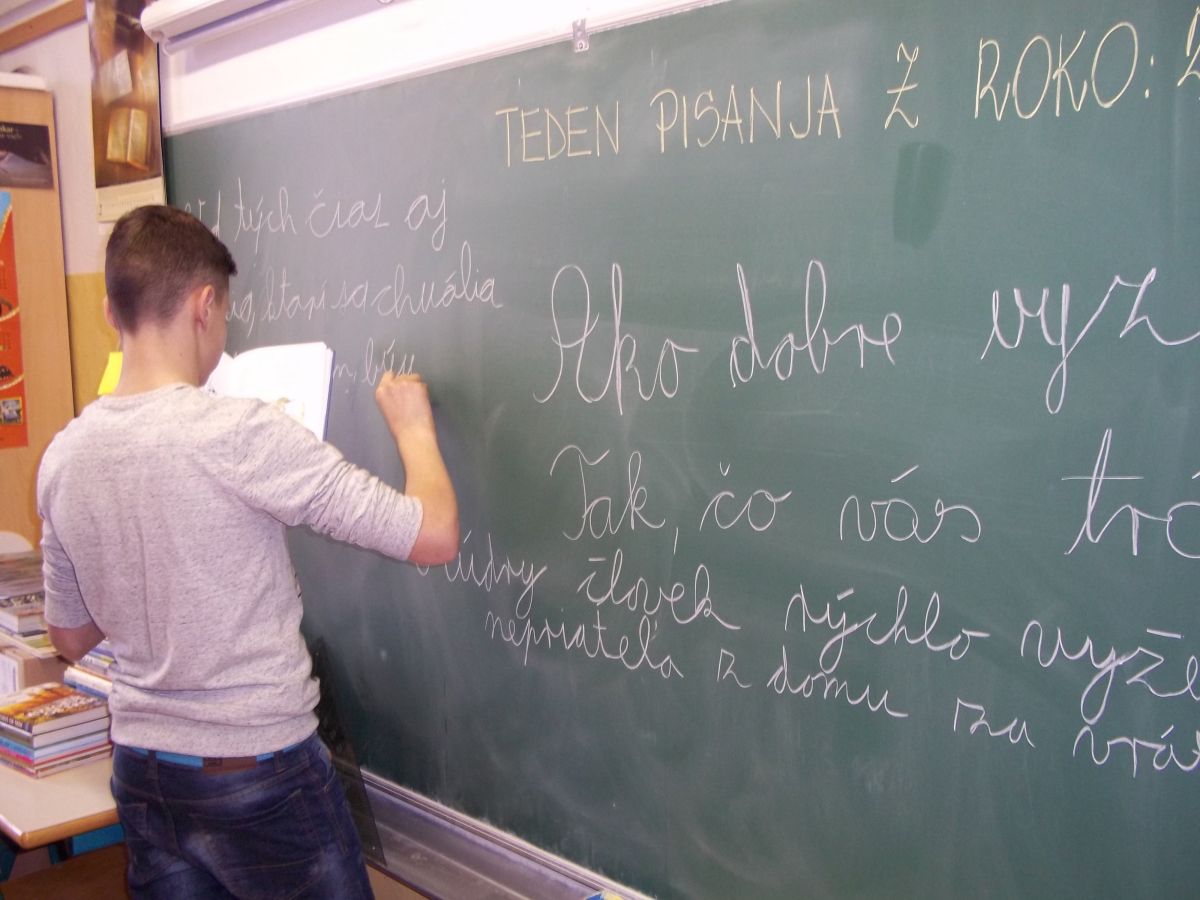 TEDEN PISANJA Z ROKO:
tých čias aj
starí sa chvália
Ako dobre vyz
Tak, čo vás trá
múdry človek rýchlo vyže
nepriateľa z domu za vrát